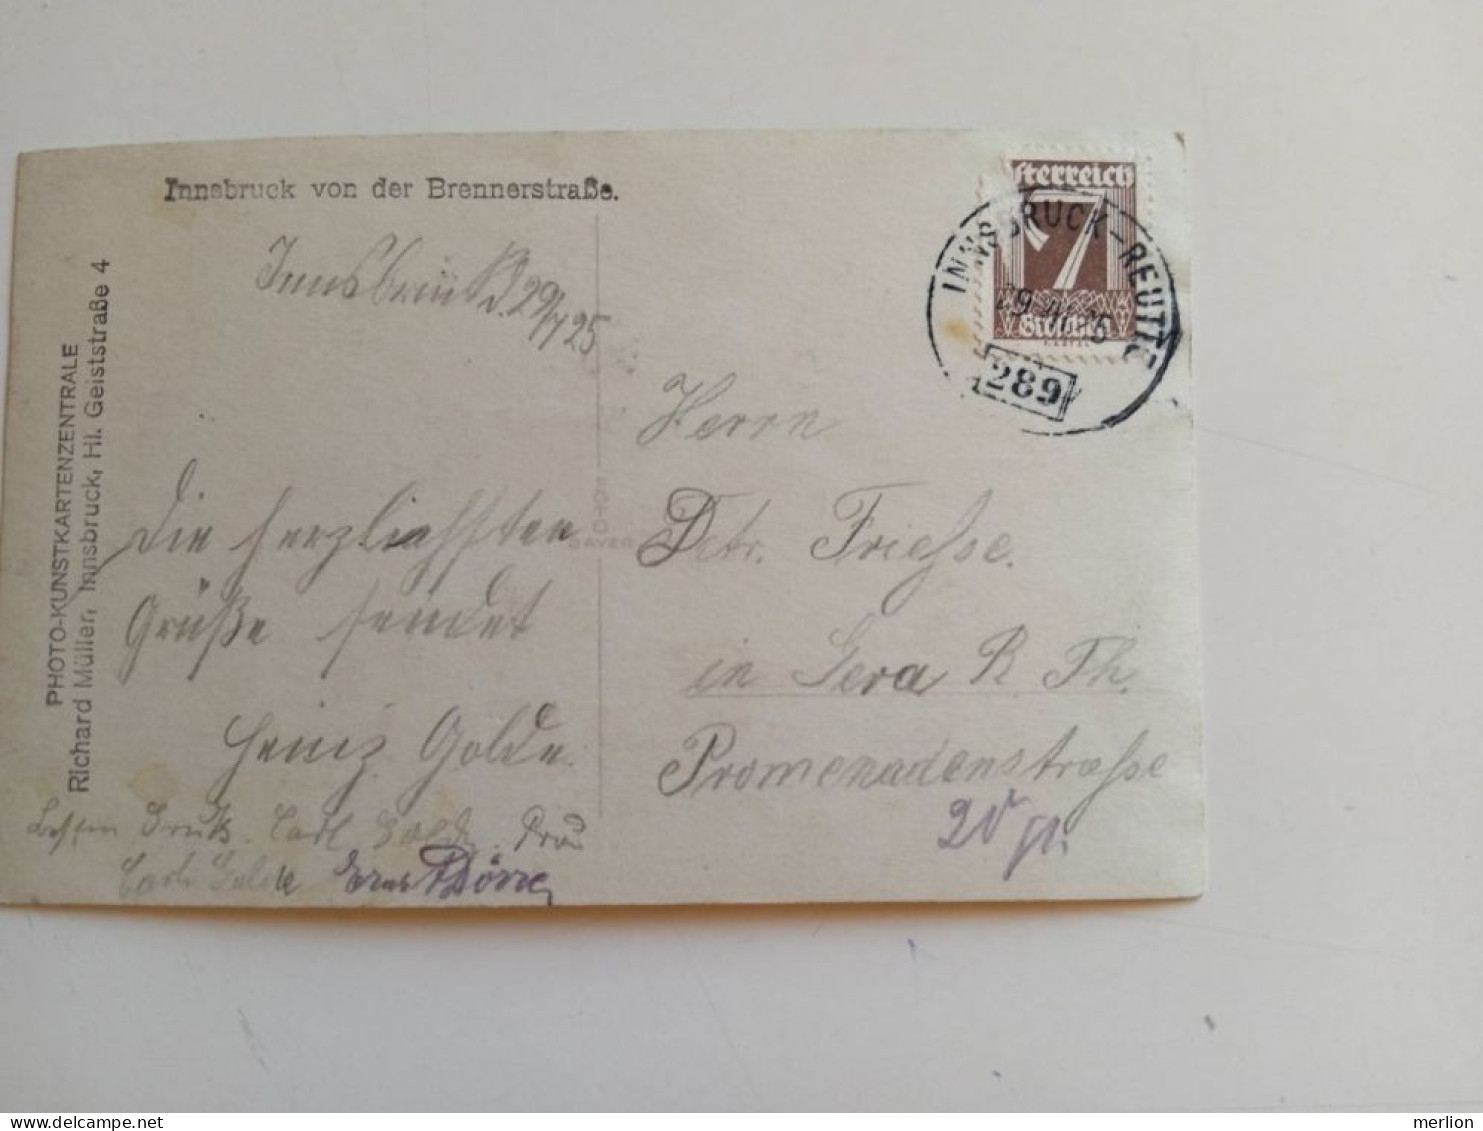 Innsbruck von der Brennerstraße.
PHOTO-KUNSTKARTENZENTRALE
Richard Müller, Innsbruck, Hl. Geiststraße 4
Innsbruck d. 29/7 25
Die herzlichsten
Grüße sendet
Heinz Golde.
Carl
Ernst Dörre
sterreich
7
Groschen
INNSBRUCK-REUTTE
289
Herrn
Detr. Friesse.
in Gera R. Th.
Promenadenstraße
20
merlion